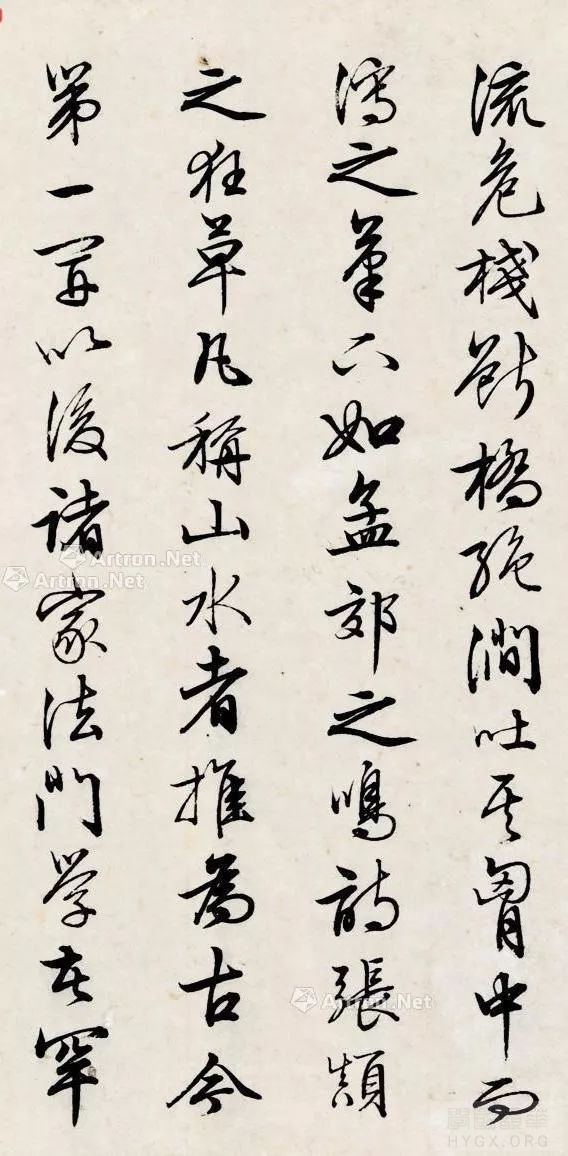 流危棧斷橋絕澗吐其胷中而
瀉之筆下如孟郊之鳴詩張顛
之狂草凡稱山水者推為古今
第一以後諸家法門學者罕
Artron.Net
Artron.Net
Artron.Net
HYGX.ORG